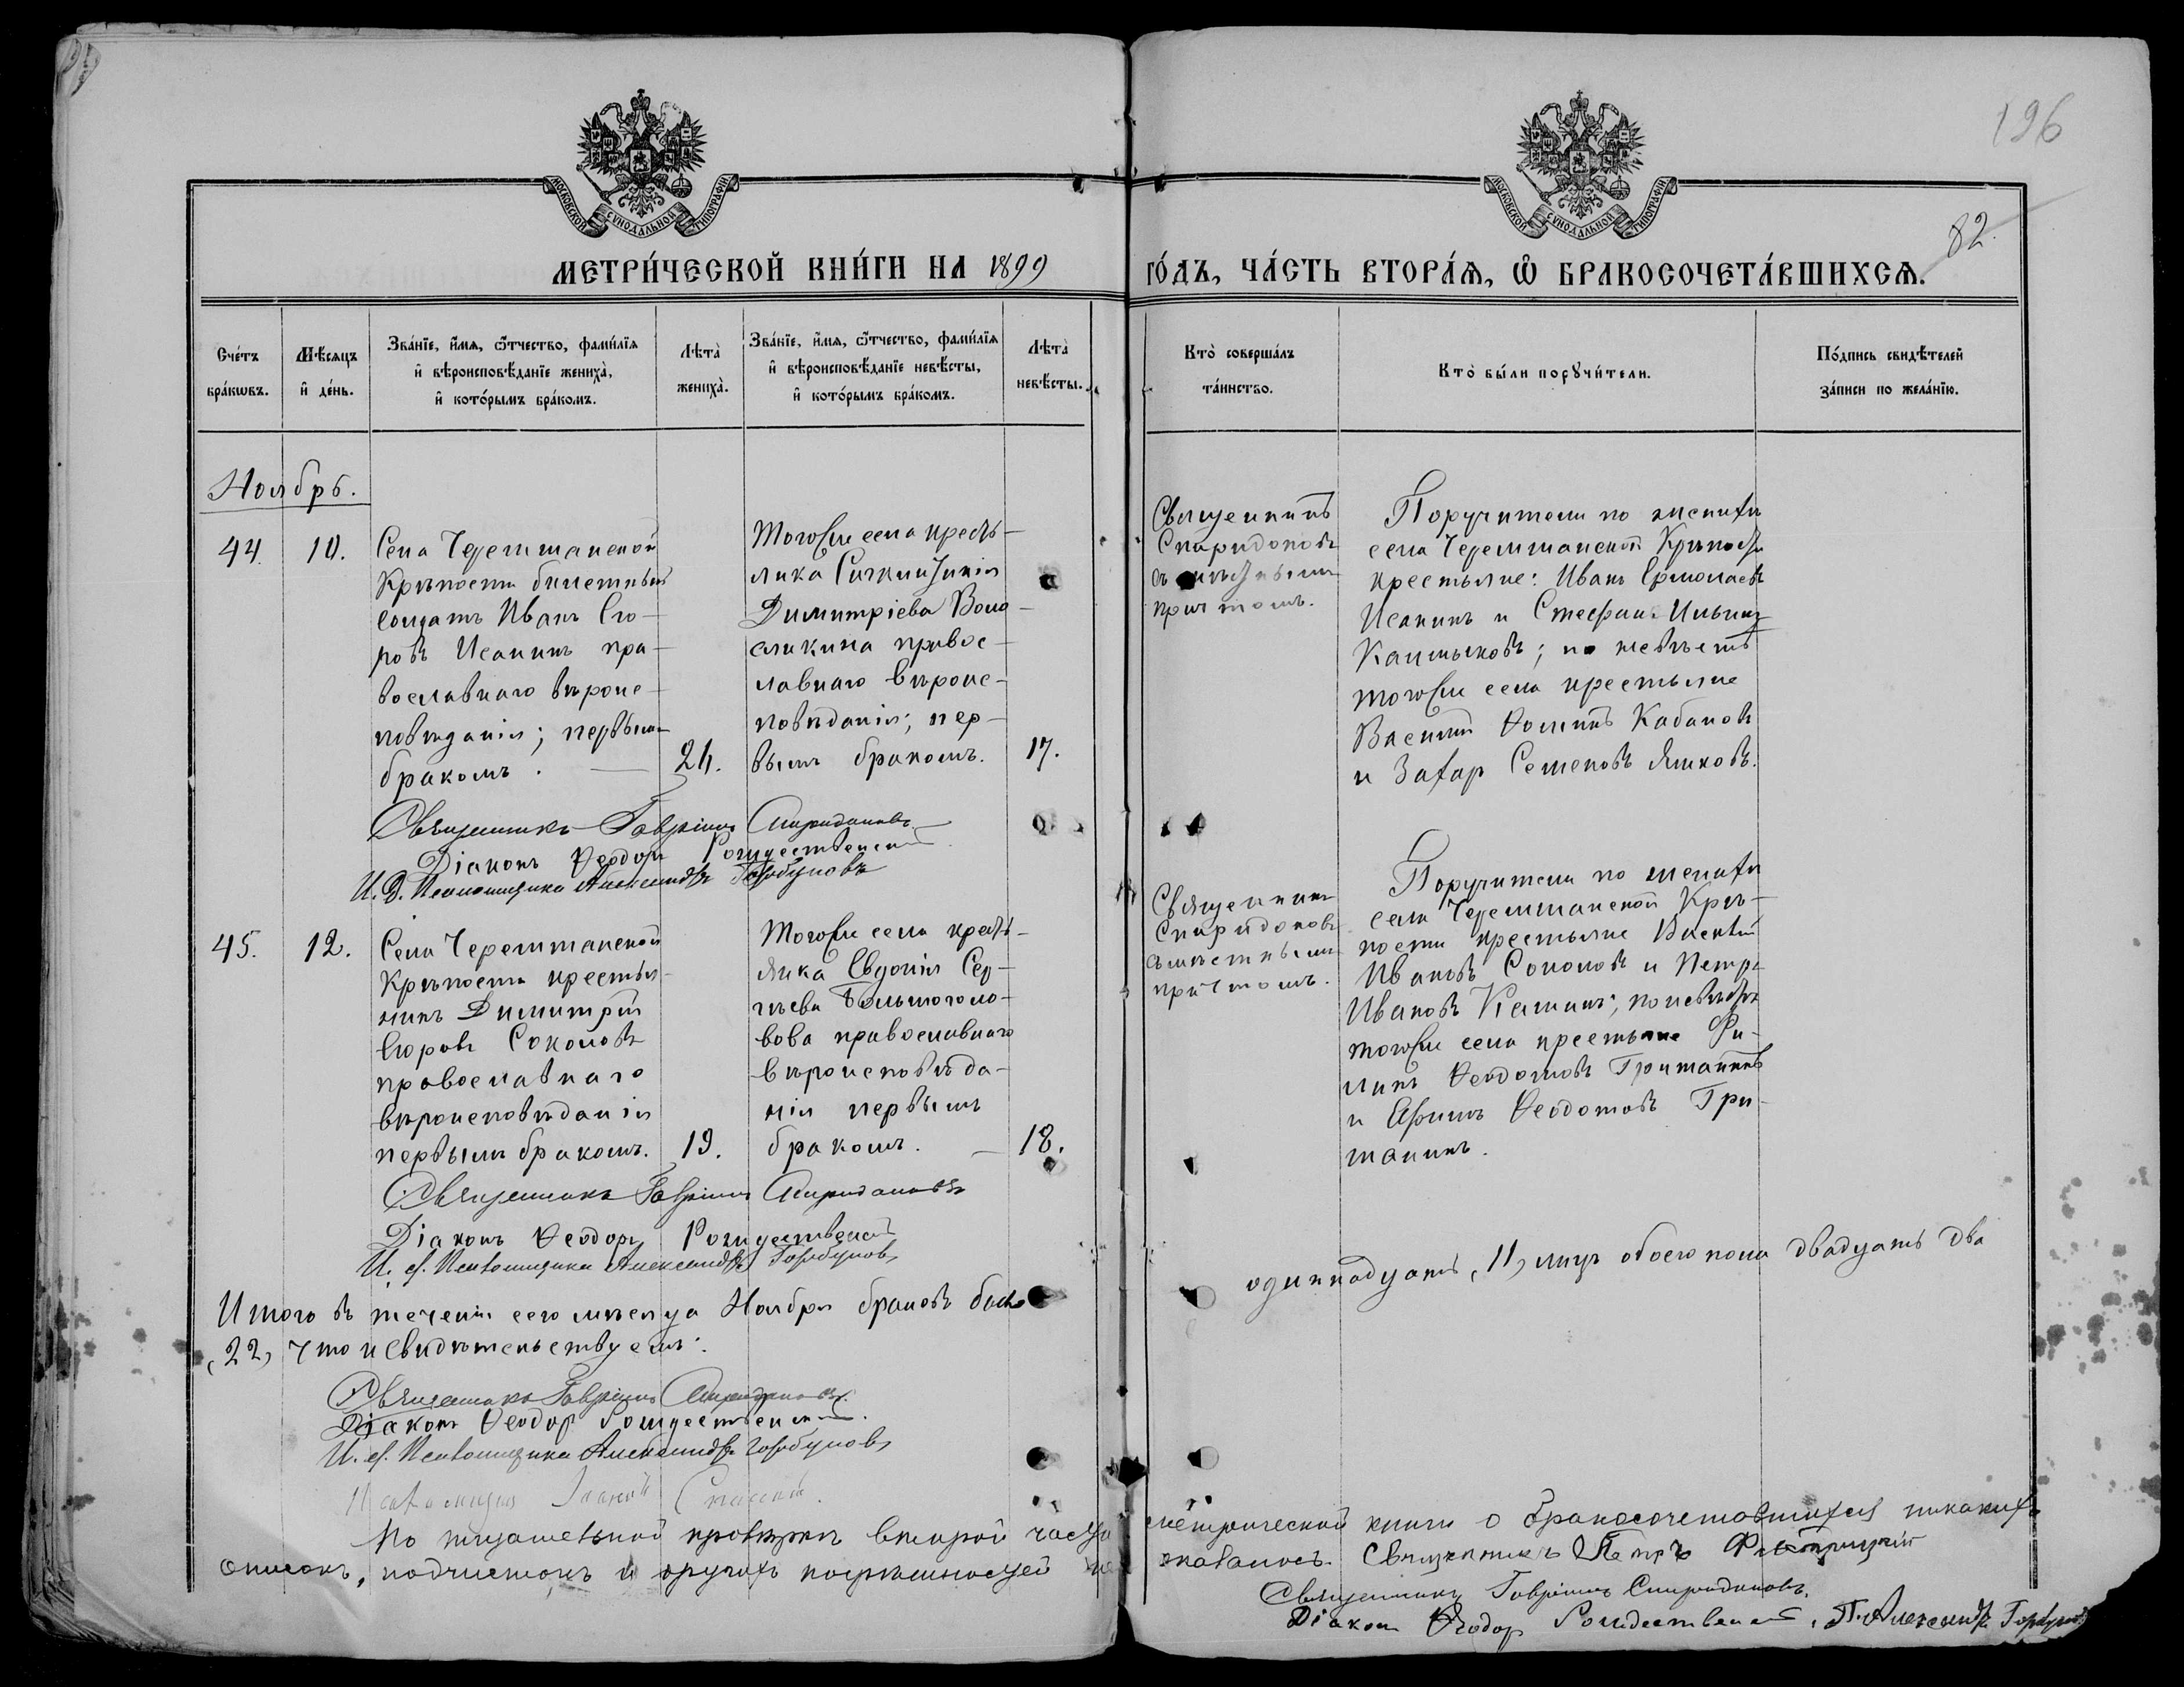 196
82.
МОСКОВСКОЙ СУНОДАЛЬНОЙ ТИПОГРАФІИ
МОСКОВСКОЙ СУНОДАЛЬНОЙ ТИПОГРАФІИ
МЕТРИ́ЧЕСКОЙ КНИ́ГИ НА 1899 ГО́ДЪ, ЧА́СТЬ ВТОРА́Ѧ, Ѽ БРАКОСОЧЕТА́ВШИХСѦ.
Сче́тъ бра́кѡвъ.
Мѣ́сяцъ и҆ де́нь.
Зва́нїе, и҆́мя, ѻ҆́тчество, фами́лїя
и҆ вѣроисповѣ́данїе жениха̀,
и҆ кото́рымъ бра́комъ.
Лѣта̀ жениха̀.
Зва́нїе, и҆́мя, ѻ҆́тчество, фами́лїя
и҆ вѣроисповѣ́данїе невѣ́сты,
и҆ кото́рымъ бра́комъ.
Лѣта̀ невѣ́сты.
Кто̀ соверша́лъ та́инство.
Кто̀ бы́ли порꙋчи́тели.
По́дпись свидѣ́телей за́писи по жела́нїю.
Ноябрь.
44. 10.
Села Черемшанской
Крѣпости билетный
солдатъ Иванъ Его-
ровъ Исанинъ пра-
вославнаго вѣроис-
повѣданія; первымъ
бракомъ. — 24.
Тогоже села кресть-
янка
Димитріева
правос-
лавнаго вѣроис-
повѣданія; пер-
вымъ бракомъ. 17.
Священникъ
Спиридоновъ
съ мѣстнымъ
причтомъ.
Поручители по женихѣ
села Черемшанской Крѣпости
крестьяне: Иванъ Ермолаевъ
Исанинъ и Стефанъ Ильинъ
Калмыковъ; по невѣстѣ
тогоже села крестьяне
Василій Ѳоминъ Кабановъ
и Захаръ Семеновъ Яшковъ.
Священникъ Гавріилъ Спиридоновъ
Діаконъ Ѳеодоръ Рождественскій
И. д. Псаломщика Александръ Горбуновъ
45. 12.
Села Черемшанской
Крѣпости крестья-
нинъ Димитрій
Егоровъ Соколовъ
православнаго
вѣроисповѣданія
первымъ бракомъ. 19.
Тогоже села кресть-
янка Евдокія Сер-
гѣева Большоголо-
вова православнаго
вѣроисповѣда-
нія первымъ
бракомъ. — 18.
Священникъ
Спиридоновъ
съ мѣстнымъ
причтомъ.
Поручители по женихѣ
села Черемшанской Крѣ-
пости крестьяне Василій
Ивановъ Соколовъ и Петръ
Ивановъ; по невѣстѣ
тогоже села крестьяне Фи-
липъ Ѳеодотовъ Гришанинъ
и Ефимъ Ѳеодотовъ Гри-
шанинъ.
Священникъ Гавріилъ Спиридоновъ
Діаконъ Ѳеодоръ Рождественскій
И. д. Псаломщика Александръ Горбуновъ
Итого въ теченіи сего мѣсяца Ноября браковъ было одиннадцать (11) лицъ обоего пола двадцать два
(22) что и свидѣтельствуемъ:
Священникъ Гавріилъ Спиридоновъ.
Діаконъ Ѳеодоръ Рождественскій.
И. д. Псаломщика Александръ Горбуновъ
По тщательной провѣркѣ второй части метрической книги о бракосочетавшихся никакихъ
описокъ, подчистокъ и другихъ погрѣшностей не оказалось. Священникъ Петръ
Священникъ Гавріилъ Спиридоновъ.
Діаконъ Ѳеодоръ Рождественскій. П. Александръ Горбуновъ